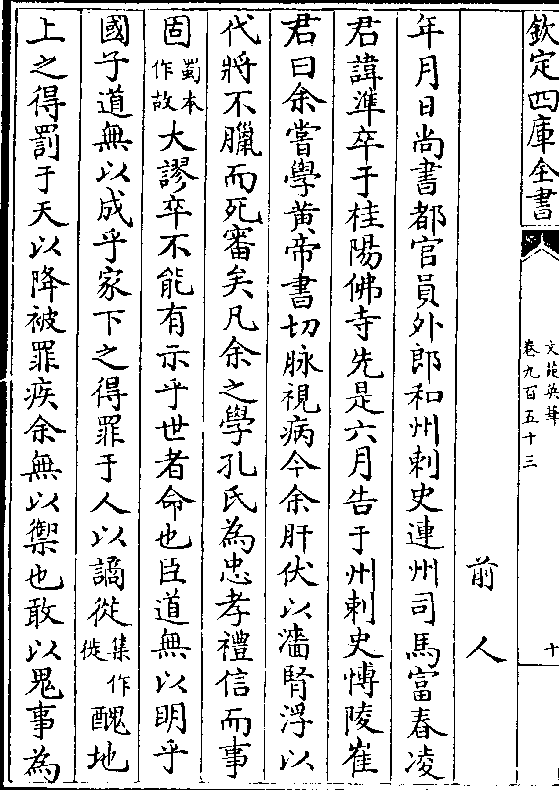 欽定四庫全書
文苑英華
卷九百五十三
十
前人
年月日尚書都官員外郎和州刺史連州司馬富春凌
君諱準卒于桂陽佛寺先是六月告于州刺史愽陵崔
君曰余嘗學黄帝書切脉視病今余肝伏以濇腎浮以
代將不臘而死審矣凡余之學孔氏為忠孝禮信而事
固蜀本作故大謬卒不能有示乎世者命也臣道無以明乎
國子道無以成乎家下之得罪于人以謫從集作徙醜地
上之得罰于天以降被罪疾余無以禦也敢以鬼事為